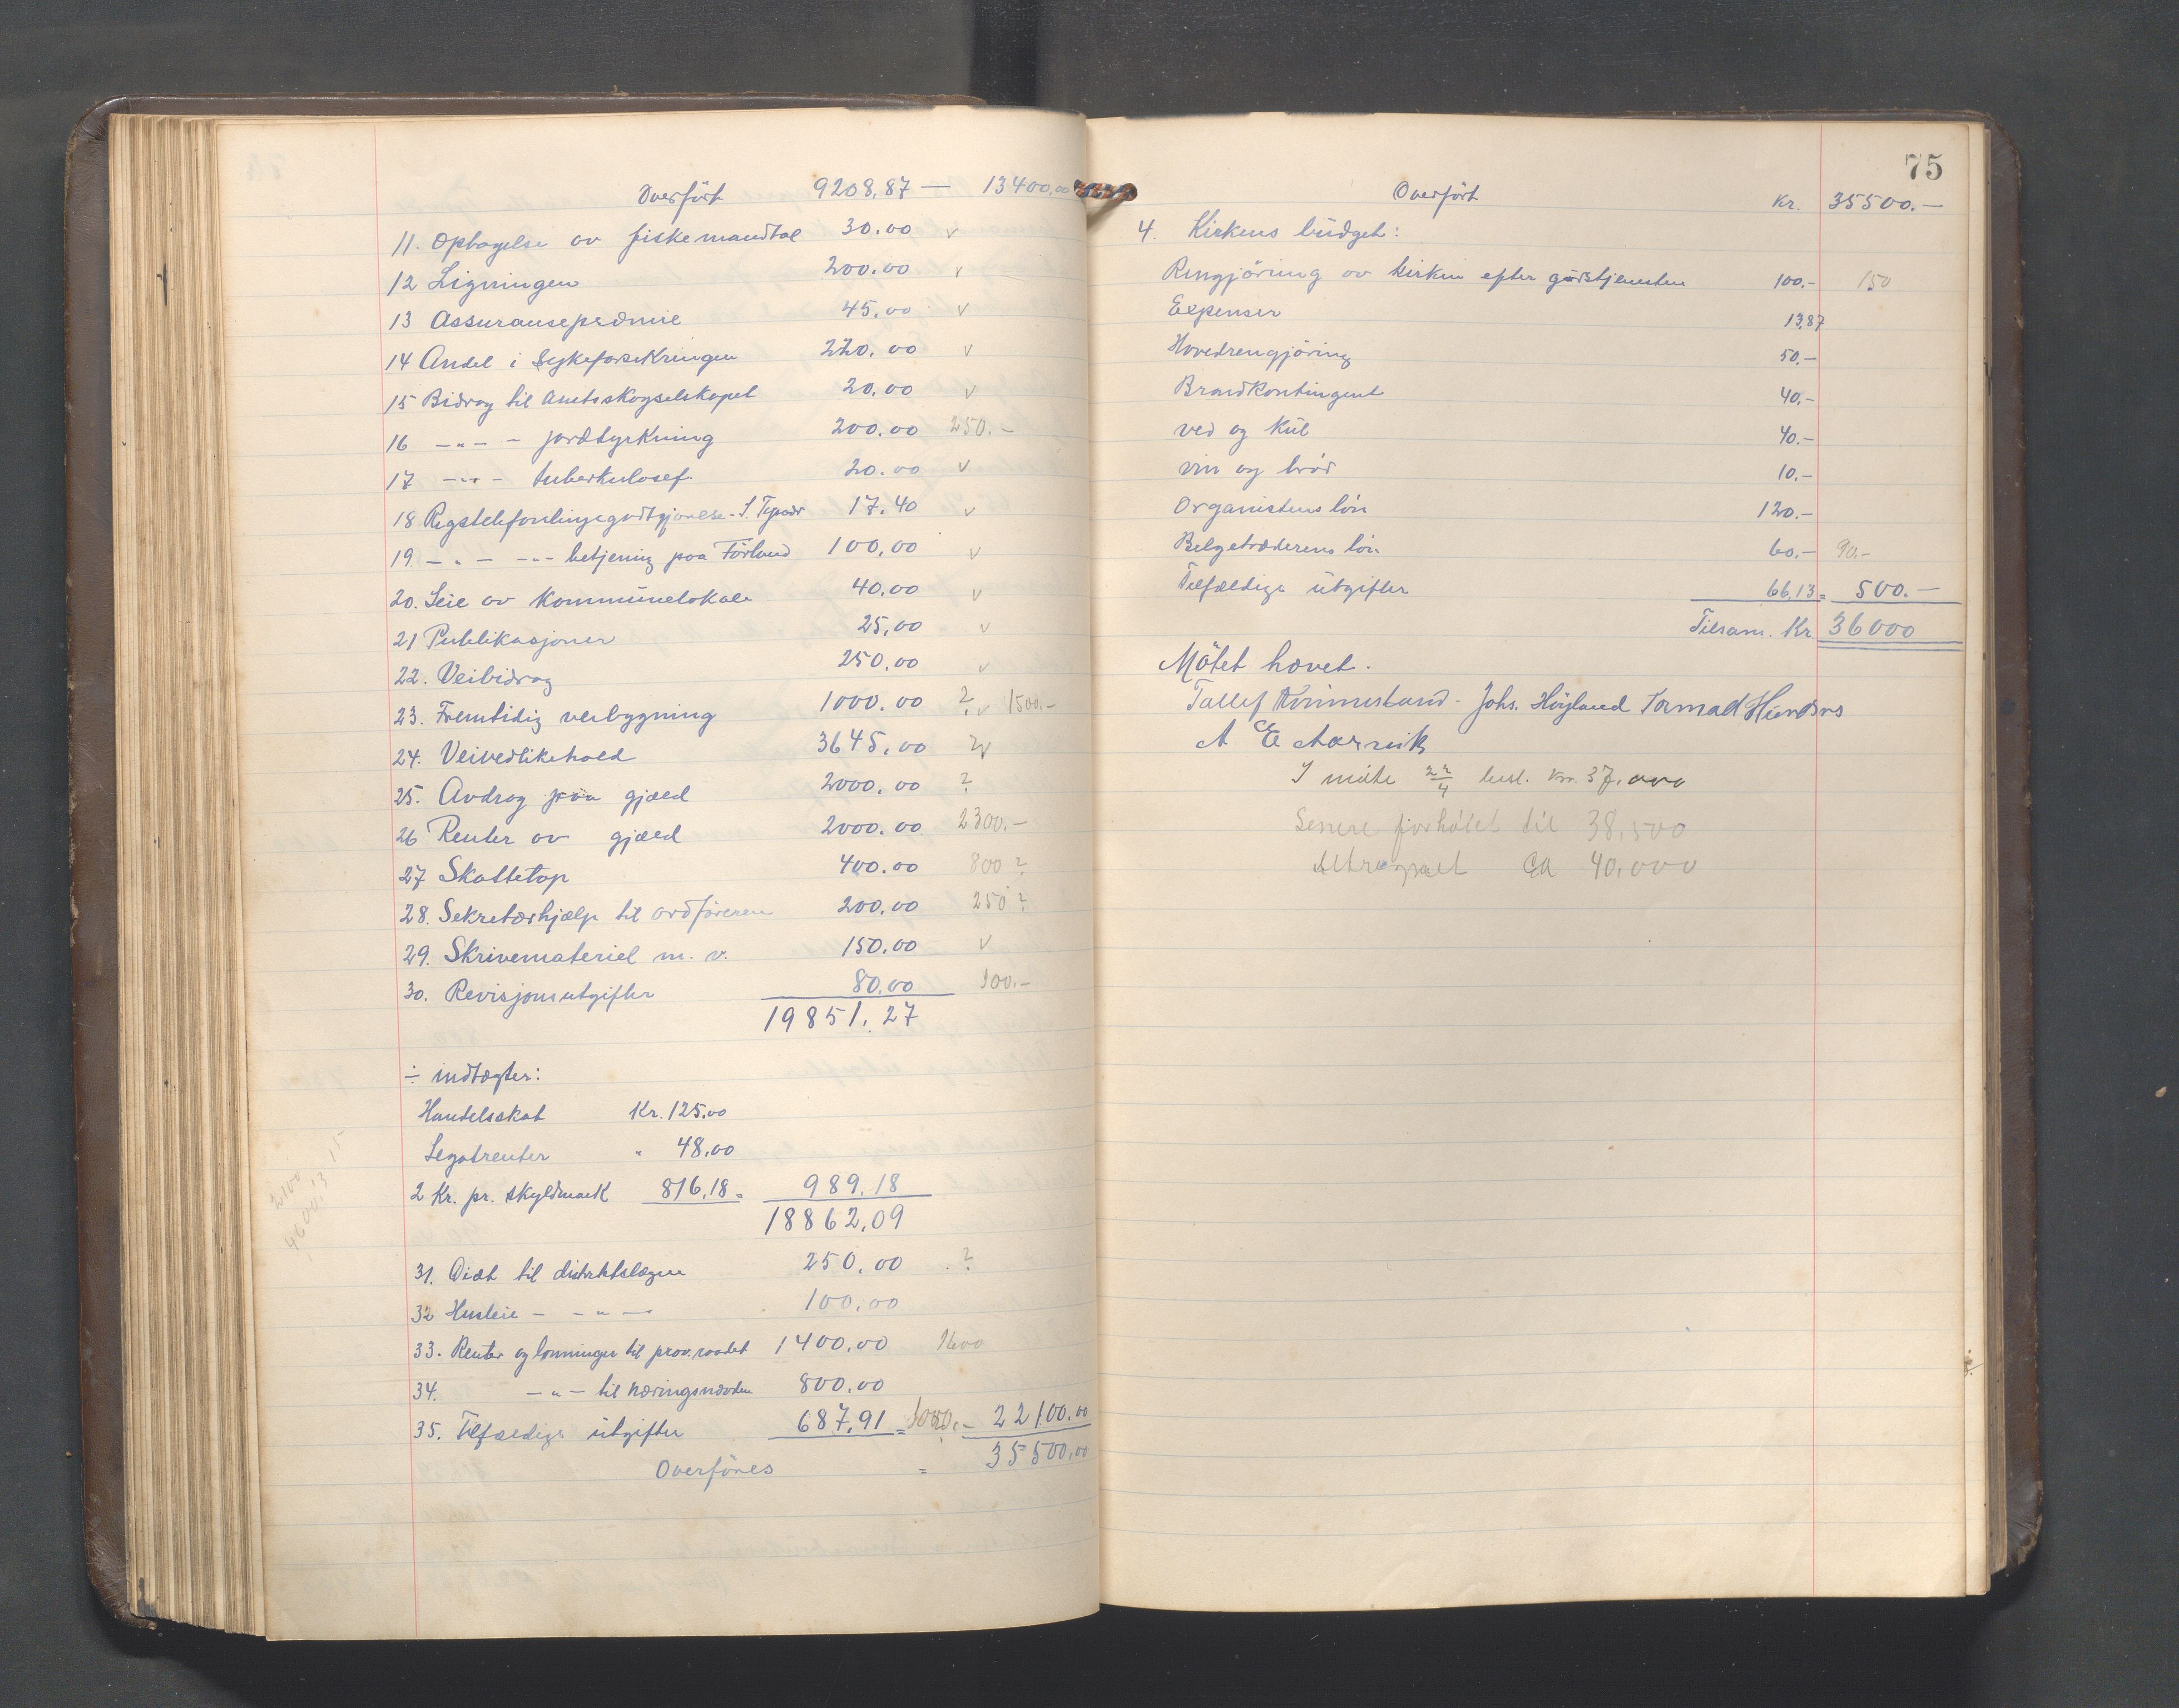 Overført 9208,87 — 13400,00
11. Optagelse av fiskemandtal 30.00 v
12 Ligningen 200.00 v
13 Assuransepræmie 45,00 v
14 Andel i Sykeforsikringen 220,00 v
15 Bidrag til Amtsskogselskapet 20,00 v
16 -"- - jordtyrkning 200.00 250.-
17 -"- - tuberkulosef. 20.00 v
18 Rigstelefonlinje 17.40 v
19. -"- --- betjening paa Førland 100,00 v
20. Leie av Kommunelokale 40,00 v
21 Publikasjoner 25,00 v
22. Veibidrag 250,00 v
23. Fremtidig veibygning 1000.00 ? v 1500.-
24. Veivedlikehold 3645,00 ?v
25. Avdrag paa gjæld 2000.00 ?
26 Renter av gjæld 2000.00 2300.-
27 Skattetap 400.00 800 ?
28. Sekretærhjælp til ordføreren 200.00 250 ?
29. Skrivemateriel m. v. 150.00 v
30. Revisjonsutgifter 80.00 100.-
19851.27
÷ indtægter:
Handelsskat Kr. 125,00
Legatrenter " 48,00
2 Kr. pr. skyldmark 816,18 = 989,18
18862,09
31. Diæt til distriktslægen 250,00 ?
32 Husleie - - " - 100,00
33. Renter og lønninger til prov.raadet 1400,00 1600
34. -"- til næringsnævden 800.00
35. Tilfældige utgifter 687,91 = 1000.- 22100.00
35500,00
Overføres =
75
Overført Kr. 35500.-
4. Kirkens budget:
Rengjøring av kirken efter gudstjenesten 100.- 150
Expenser 13,87
Hovedrengjøring 50.-
Brandkontingent 40.-
ved og kul 40.-
vin og brød 10.-
Organistens løn 120.-
Belgetræderens løn 60.- 90.-
Tilfældige utgifter 66,13 = 500.-
Tilsam. Kr. 36000
Møtet hævet.
Tallef Johs. Høyland Tormod
A E Aarvik
I møte 22/4 besl. kr. 37.000
Senere forhøiet til 38,500
ca 40,000